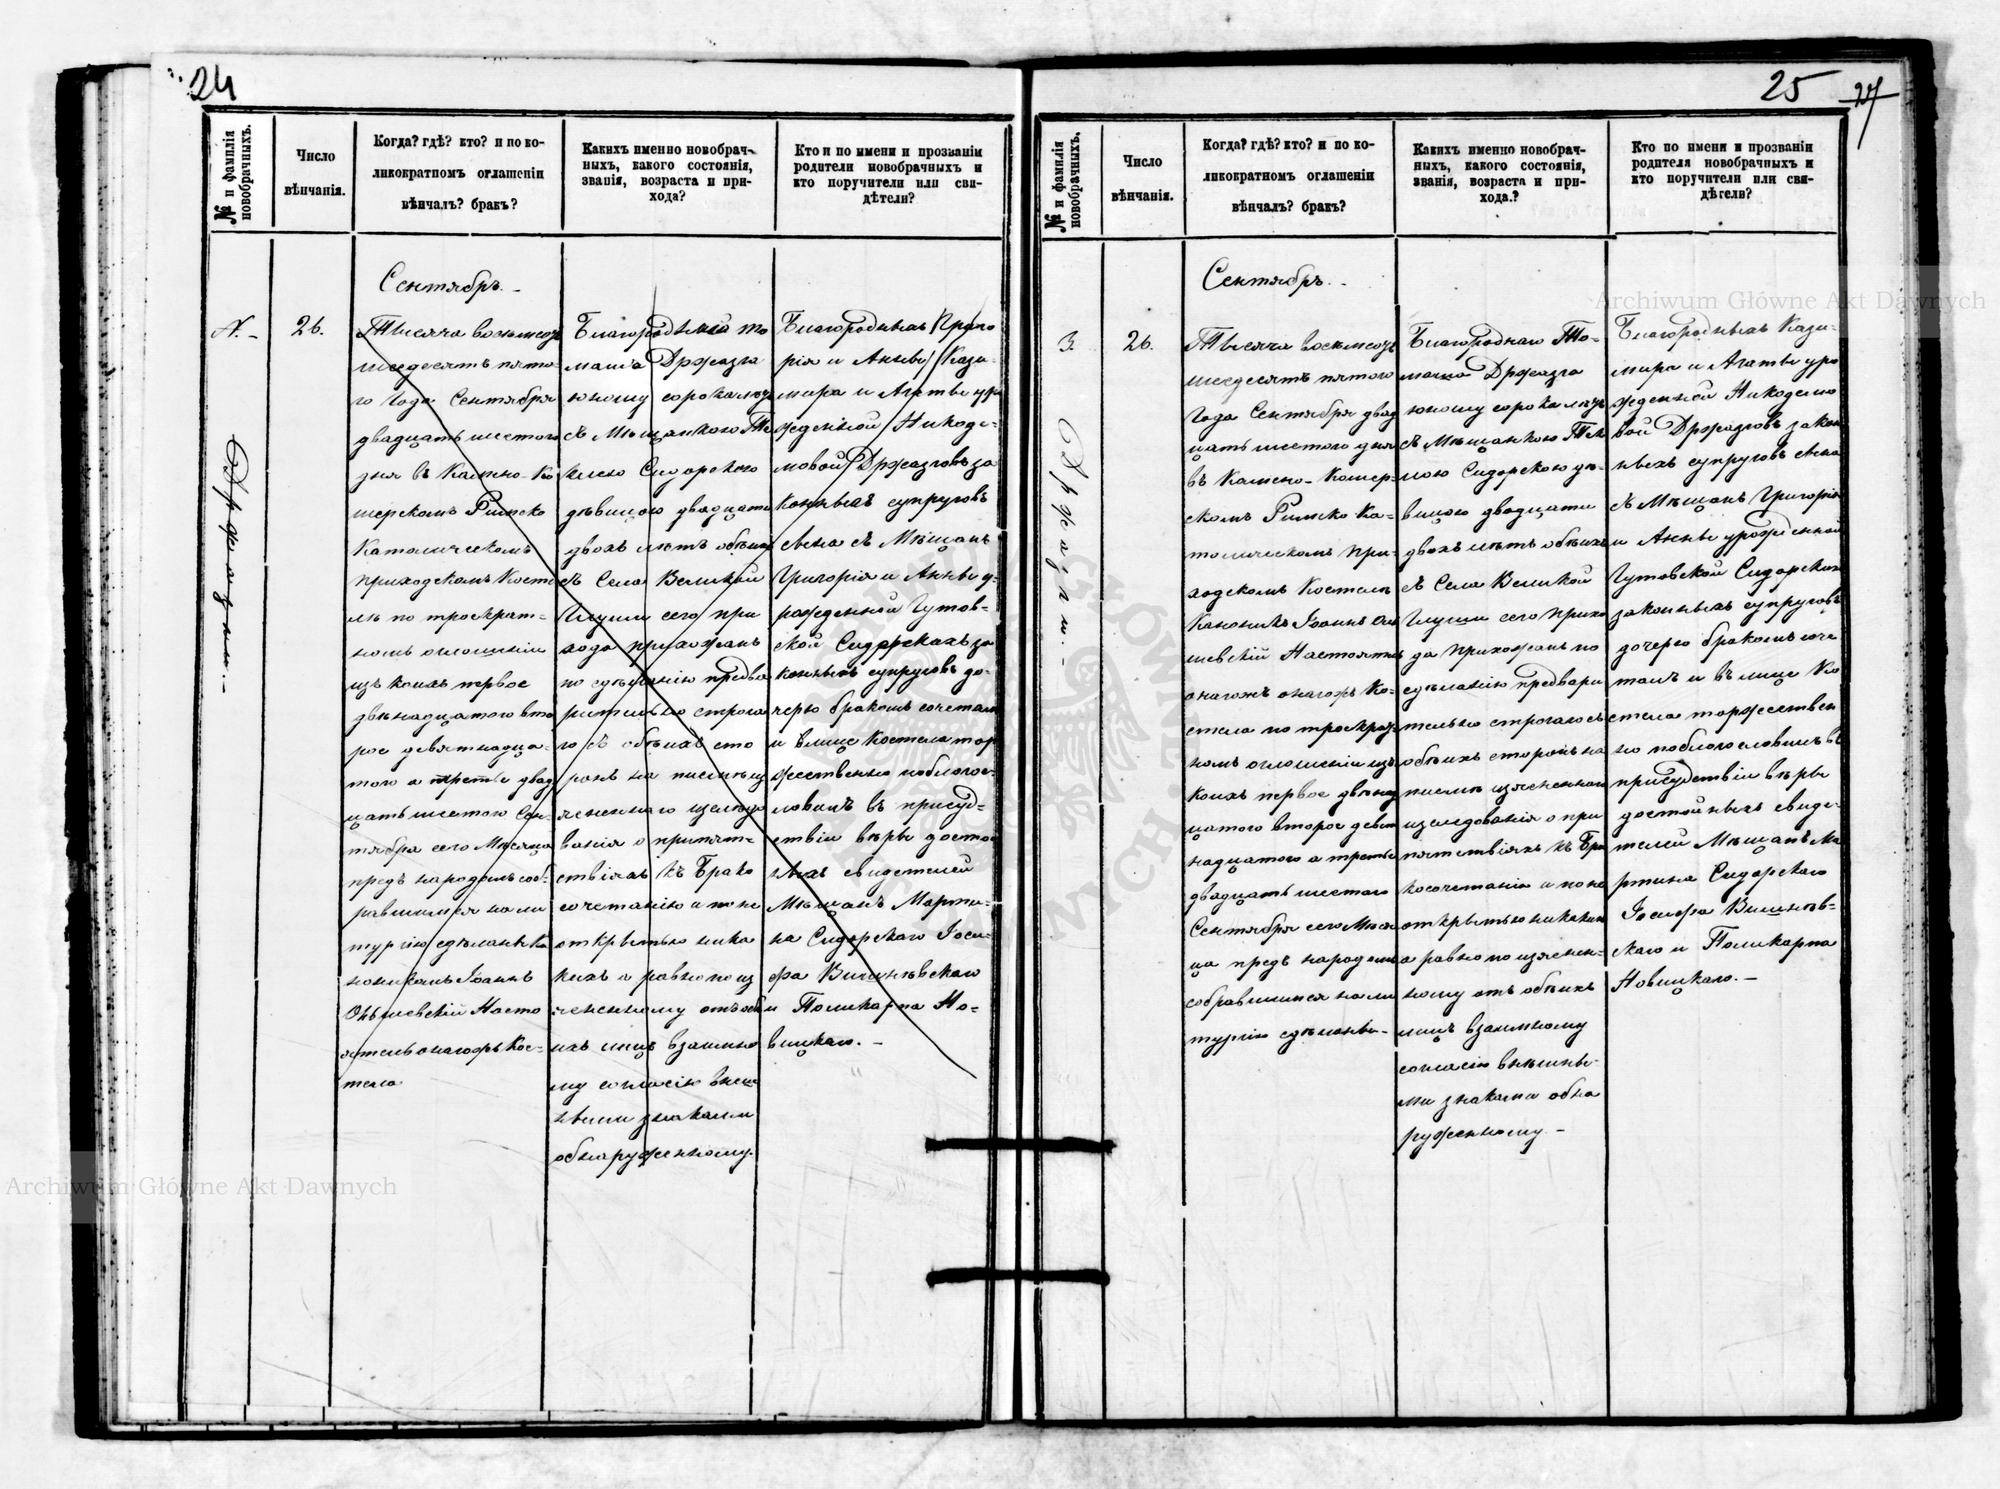 24
№ и фамилія новобрачныхъ.
Число
вѣнчанія.
Когда? гдѣ? кто? и по ко-
ликократномъ оглашеніи
вѣнчалъ? бракъ?
Какихъ именно новобрач-
ныхъ, какого состоянія,
званія, возраста и при-
хода?
Кто и по имени и прозваніи
родители новобрачныхъ и
кто поручители или сви-
дѣтели?
Сентябрь.
26.
Тысяча восьмсотъ
шесдесятъ пято
го Года Сентября
двадцать шестого
дня въ Камено-Ко
шерскомъ Римско
Католическомъ
приходскомъ Косте
лѣ по троекрат-
номъ оглошеніи
изъ коихъ первое
двѣнадцатого вто
рое девятнадца-
того а третье двад
цать шестого Сен-
тября сего Мѣсяца
предъ народомъ соб-
равшимся на ли
тургію сдѣланы Ка
ноникомъ Іоаннъ
Настo
ятель онагожъ Кос-
тела
Благородный То
машъ Држазга
юному сорока лѣтъ
съ Мѣщанкою Те
клею Сидорскою
дѣвицою двадцати
двохъ лѣтъ обѣихъ
съ Села Великой
Глуши сего при
хода прихожанъ
по сдѣланію предва
рительно строга
го съ обѣихъ сто
ронъ на письмѣ из
ясненного изслѣдо
ванія о припят-
ствіяхъ къ Брако
сочетанію и по не
открытью ника
кихъ а равно по из
ясненному отъ обѣ
ихъ лицъ взаимно
му согласію внеш
ными знаками
обнаруженному.
Благородныхъ Григо
рія и Анны Кази-
мира и Агаты уро
жденной Никоде-
мовой Држазговъ за
конныхъ супруговъ
сына съ Мѣщанъ
Григорія и Анны у-
рожденной Гутов-
ской Сидорскихъ за
конныхъ супруговъ до-
черю бракомъ сочеталъ
и влице Костела тор
жественно поблогос-
ловилъ въ присуд-
ствіи вѣры достой
ныхъ свидетелей
Мѣщанъ Марти-
на Сидорского Іоси-
фа Вишневского
и Поликарпа Но-
вицкаго. -
25
27
№ и фамилія новобрачныхъ.
Число
вѣнчанія.
Когда? гдѣ? кто? и по ко-
ликократномъ оглашеніи
вѣнчалъ? бракъ?
Какихъ именно новобрач-
ныхъ, какого состоянія,
званія, возраста и при-
хода?
Кто по имени и прозваніи
родителя новобрачныхъ и
кто поручители или сви-
дѣтели?
Сентябрь.
3.
26.
Тысяча восьмсотъ
шесдесятъ пятого
Года Сентября двад
цать шестого дня
въ Камено-Кошер-
скомъ Римско Ка-
толическомъ При-
ходскомъ Костелѣ
Каноникъ Іоаннъ
Настоятель
онагожъ Ко-
стела по троекрат-
номъ оглошеніи изъ
коихъ первое двѣнад
цатого второе девят
надцатого а третье
двадцать шестого
Сентября сего Мѣся
ца предъ народомъ
собравшимся на ли
тургію сдѣланы-
Благороднаго То-
маша Држазга
юному сорока лѣтъ
съ Мѣщанкою Тек
лою Сидорскою дѣ-
вицою двадцати
двохъ лѣтъ обѣихъ
съ Села Великой
Глуши сего прихо
да прихожанъ по
сдѣланію предвари
тельно строгаго съ
обѣихъ сторонъ на
письмѣ изясненнаго
изследованія о при
пятствіяхъ къ Бра
косочетанію и по не
открытью никакихъ
а равно по изяснен-
ному отъ обѣихъ
лицъ взаимному
согласію внѣшны-
ми знаками обна
руженному -
Благородныхъ Кази-
мира и Агаты уро
жденной Никодемо
вой Држазговъ закон
ныхъ супруговъ сына
съ Мѣщанъ Григорія
и Анны урожденной
Гутовской Сидорскихъ
законныхъ супруговъ
дочерю бракомъ соче
талъ и въ лице Ко
стела торжествен
но поблогословилъ въ
присудствіи вѣры
достойныхъ свиде-
телей Мѣщанъ Ма
ртина Сидорскаго
Іосифа Вишнев-
скаго и Поликарпа
Новицкаго. -
Archiwum Główne Akt Dawnych
Archiwum Główne Akt Dawnych